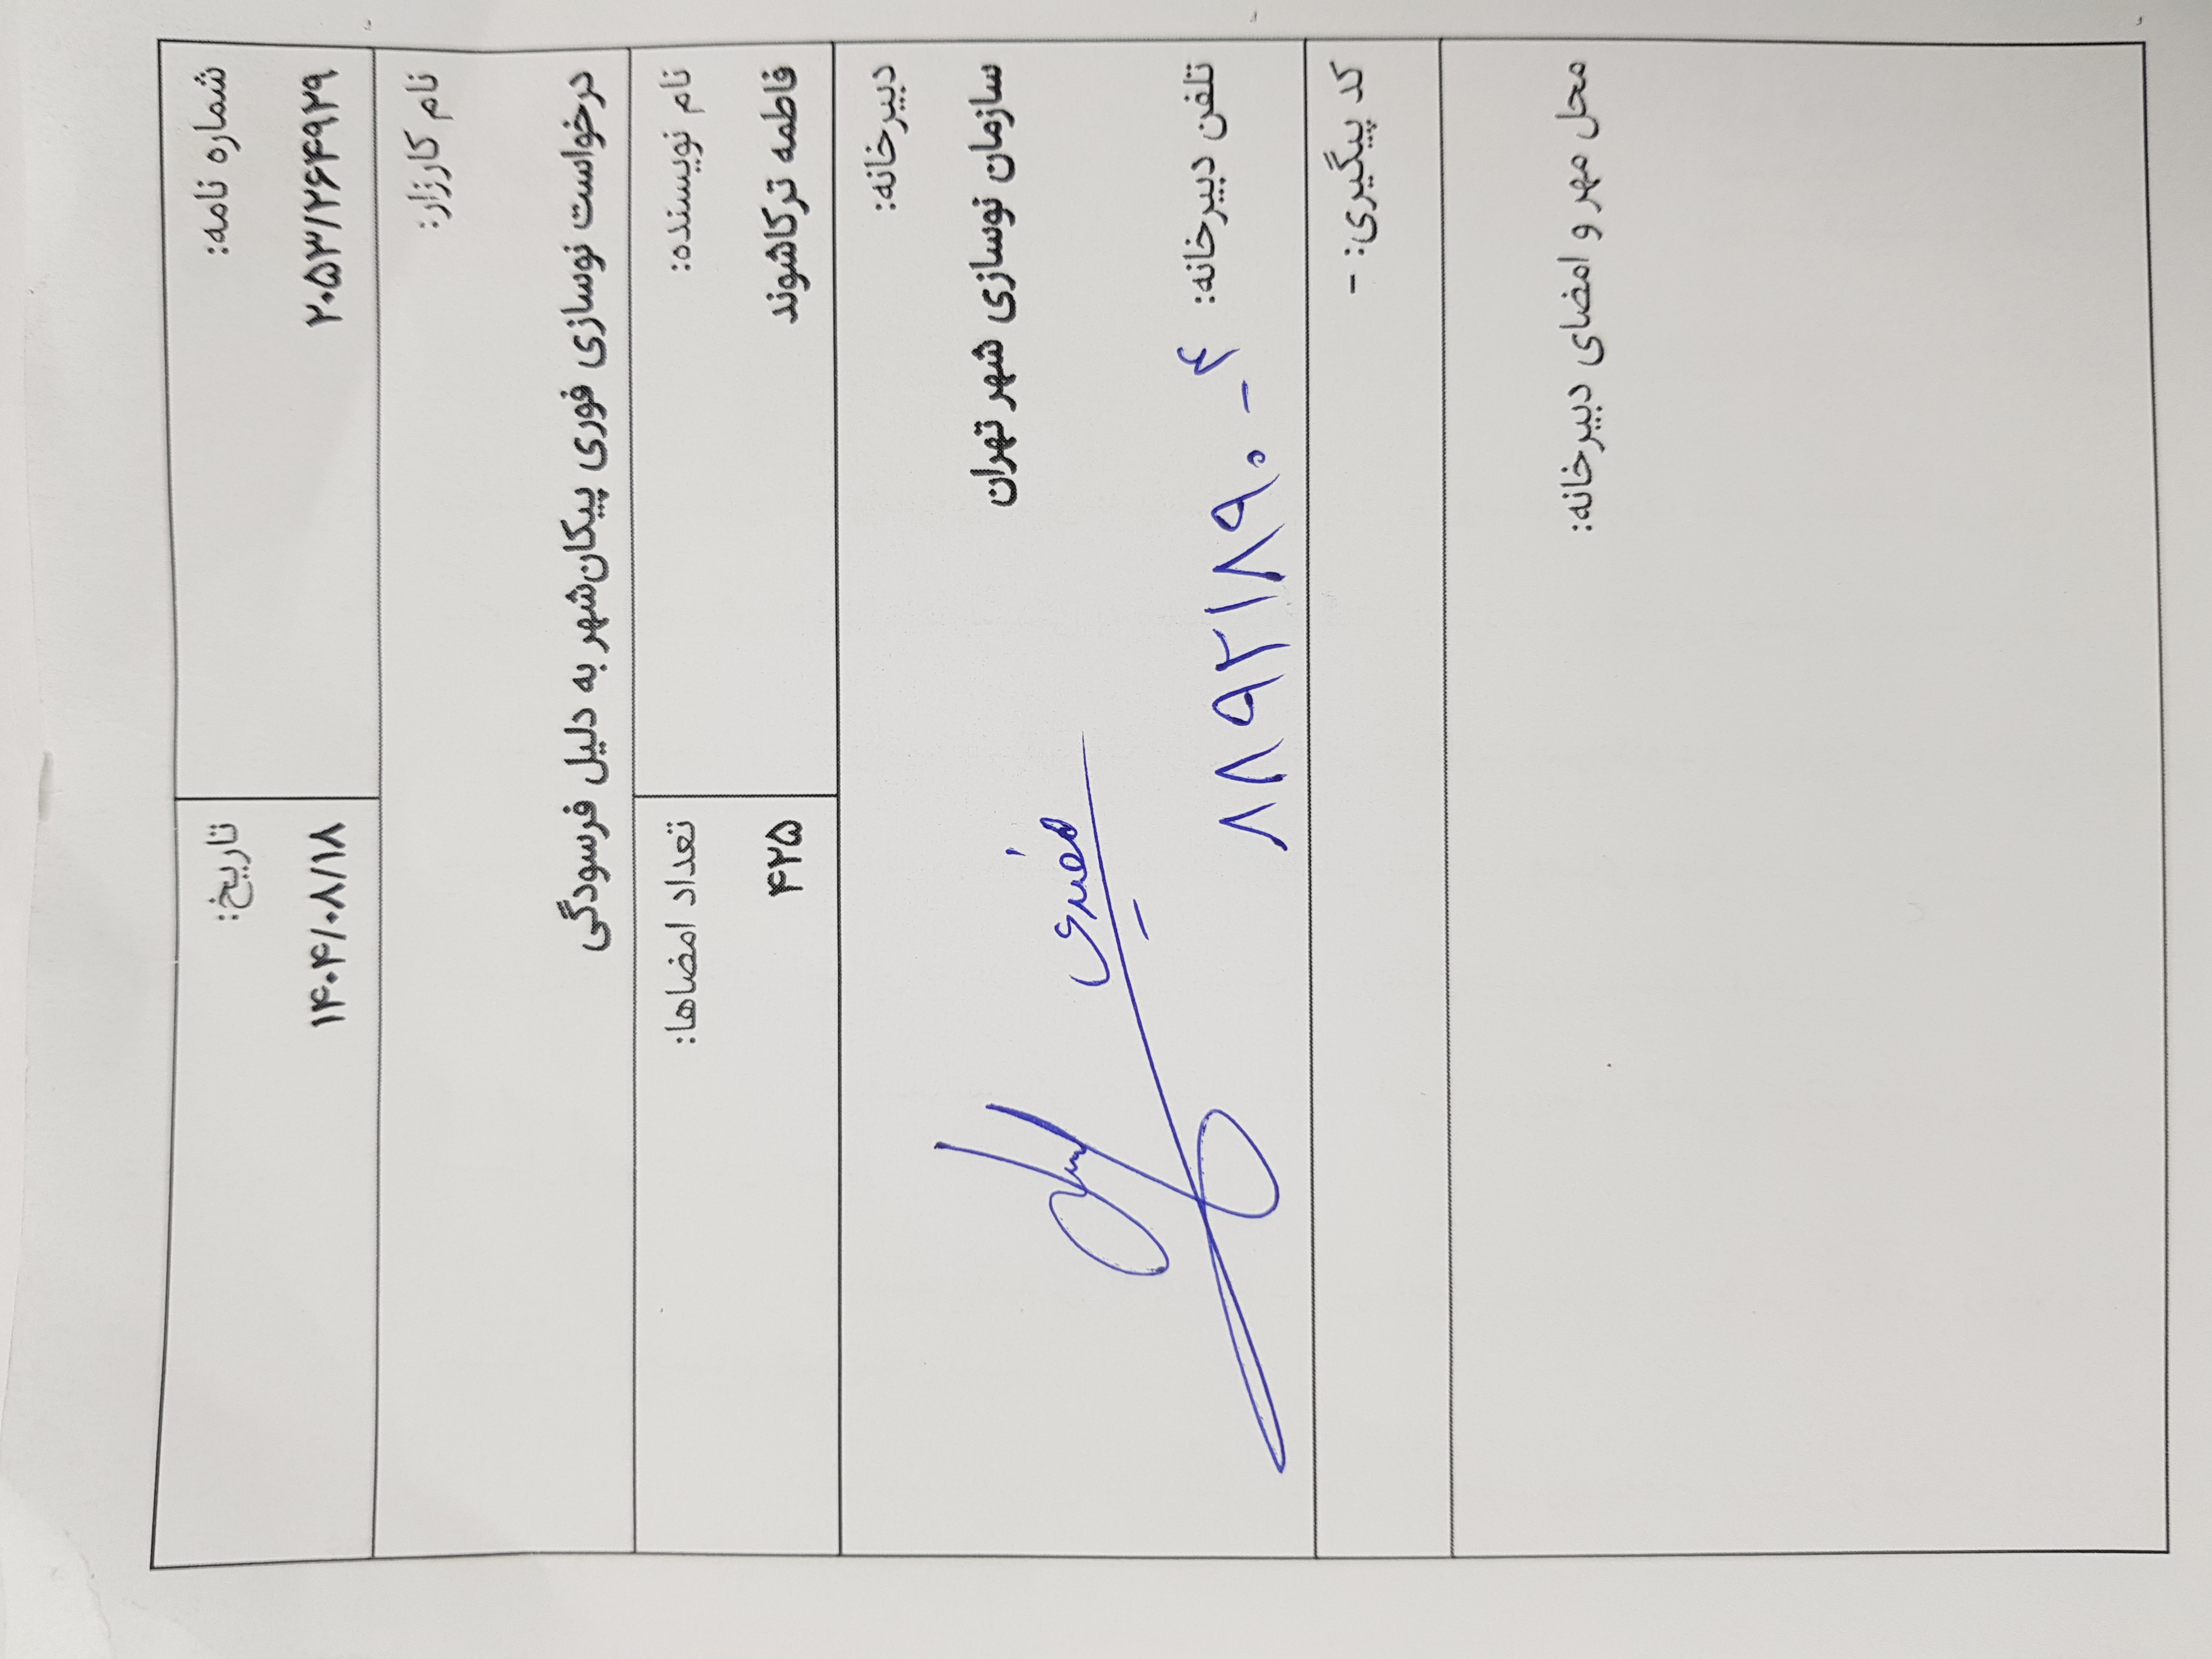 شماره نامه:
۲۰۵۳/۲۶۴۹۲۹
تاریخ:
۱۴۰۴/۰۸/۱۸
نام کارزار:
درخواست نوسازی فوری پیکان‌شهر به دلیل فرسودگی
نام نویسنده:
فاطمه ترکاشوند
تعداد امضاها:
۴۲۵
دبیرخانه:
سازمان نوسازی شهر تهران
تلفن دبیرخانه: ۸۸۹۲۱۸۹۰-۴
کد پیگیری: -
محل مهر و امضای دبیرخانه: